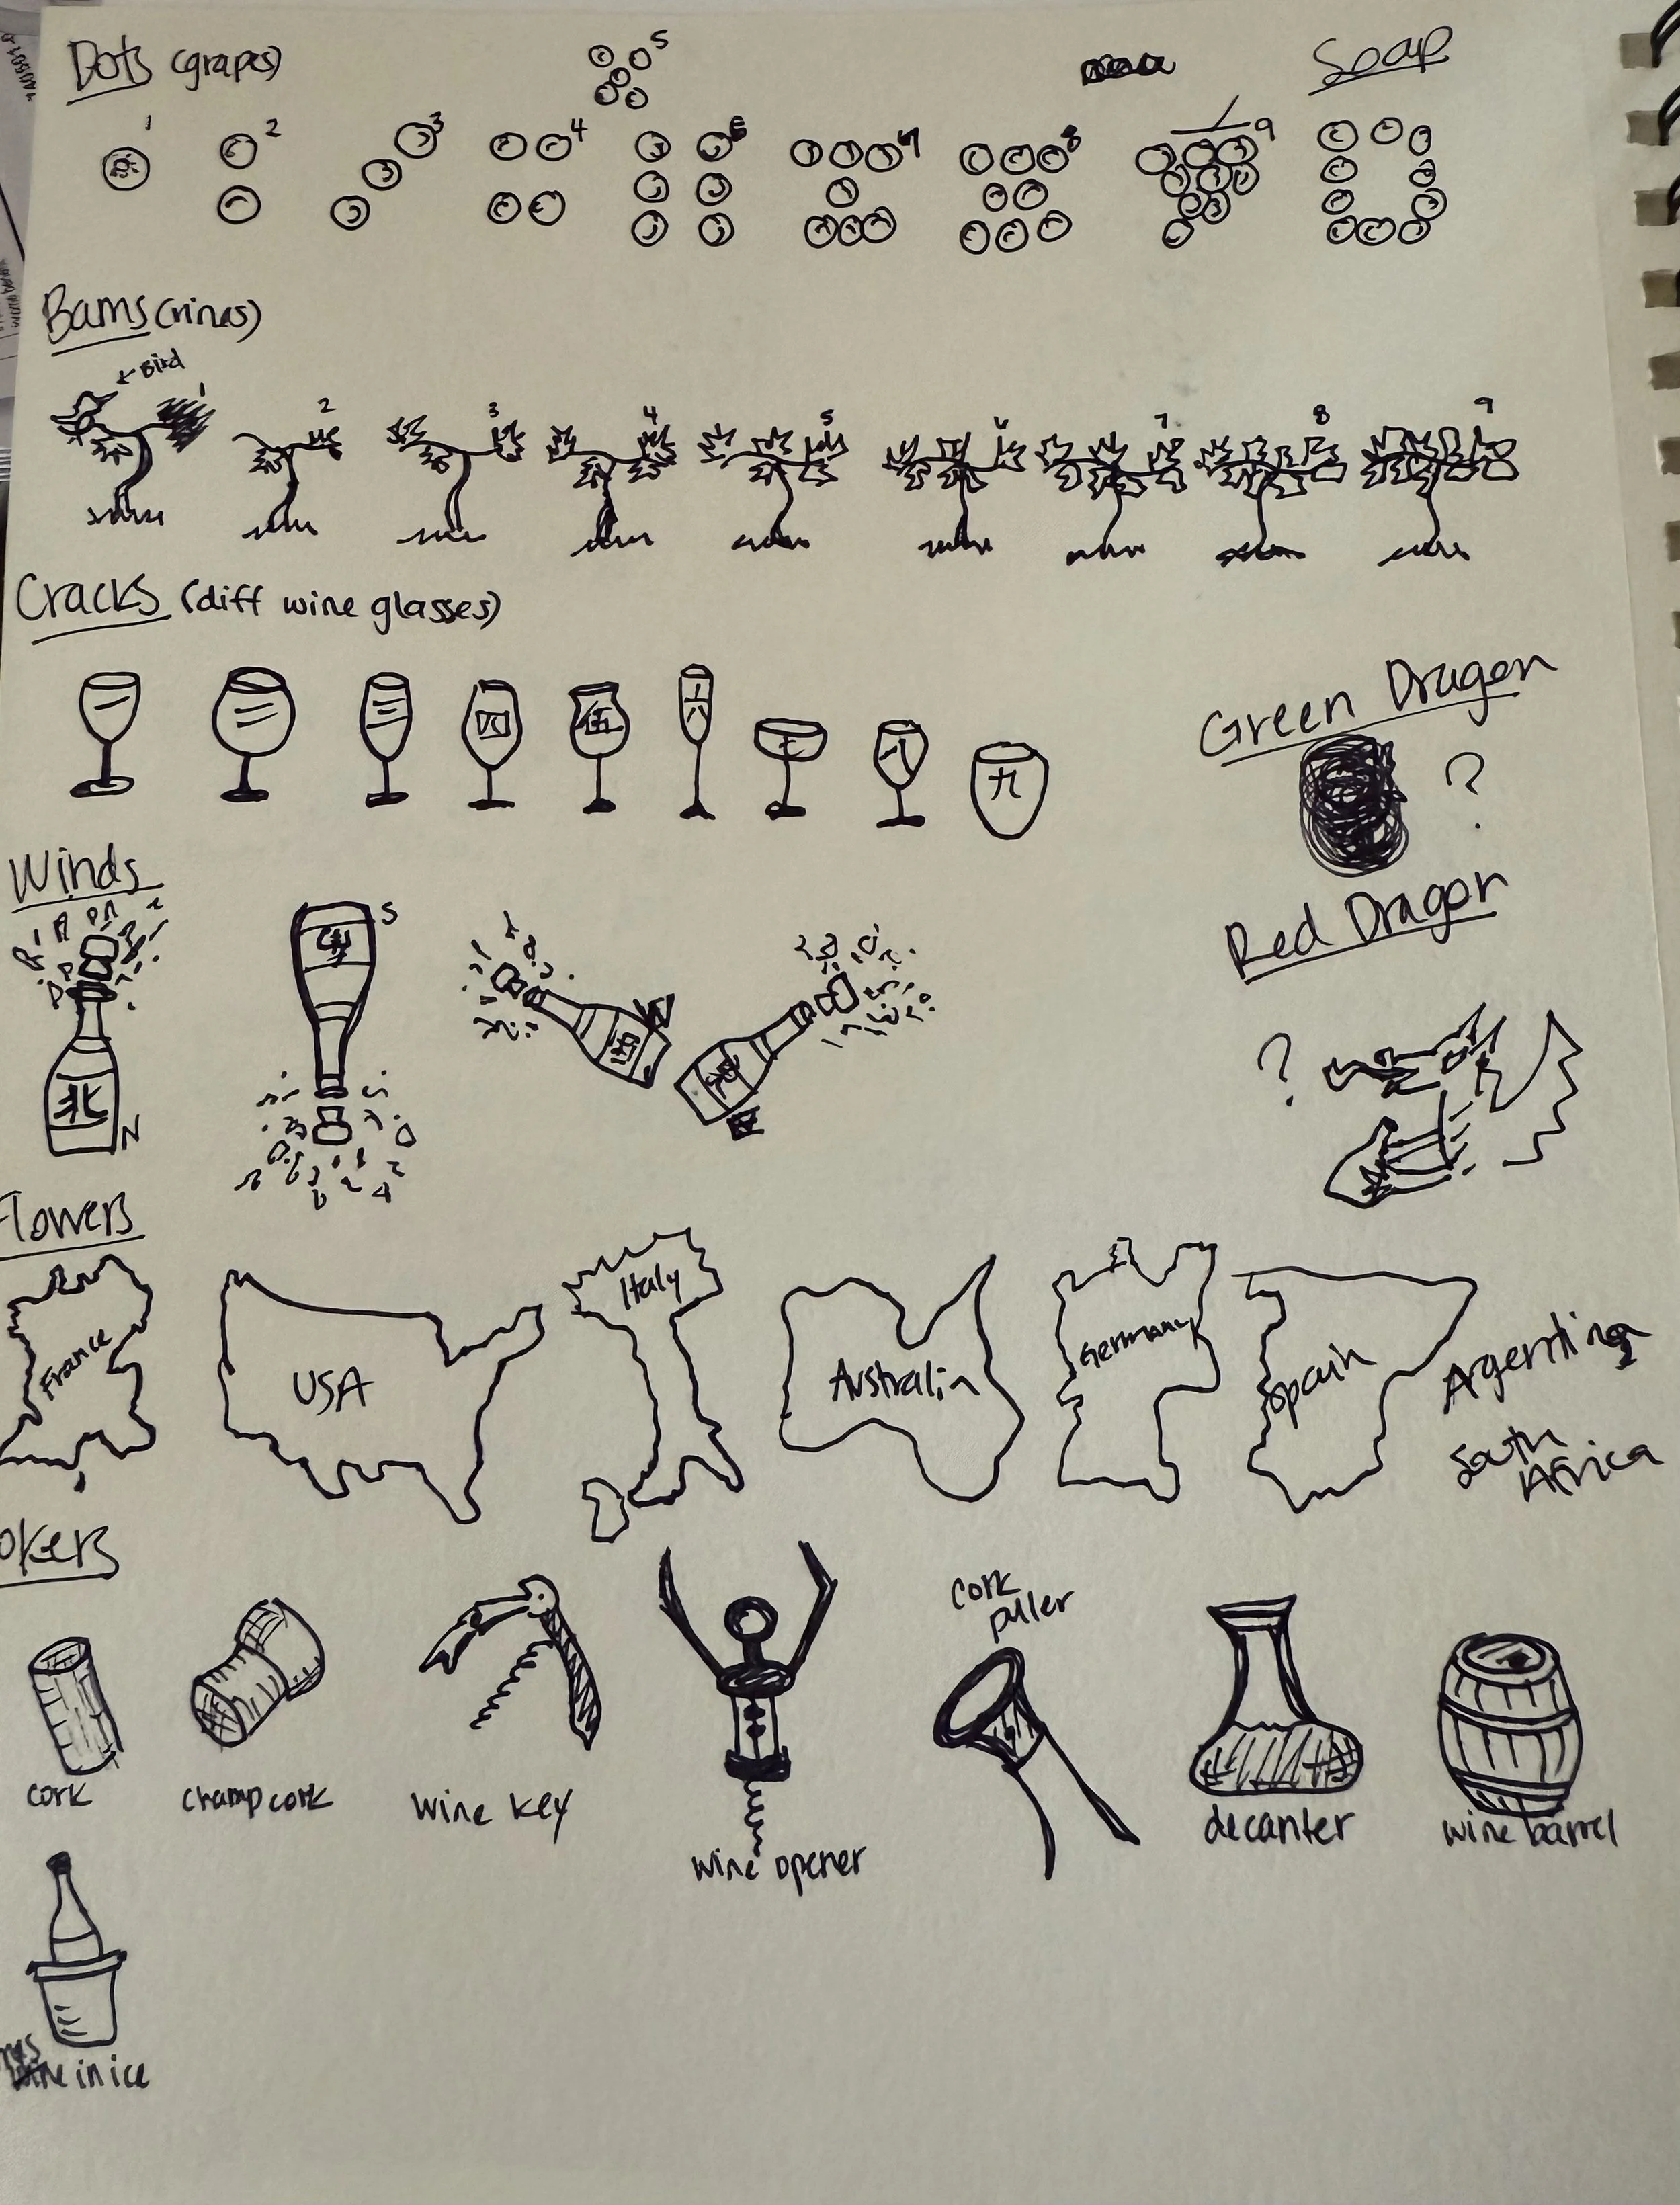 Dots (grapes)
5
Soap
1 2 3 4 6 7 8 9
Bams (vines)
← Bird
1 2 3 4 5 6 7 8 9
Cracks (diff wine glasses)
四 伍 六 七 八 九
Green Dragon
?
Winds
S
W
北
N
Red Dragon
?
Flowers
France
USA
Italy
Australia
Germany
Spain
Argentina
South
Africa
okers
cork
puller
cork
champ cork
wine key
wine opener
decanter
wine barrel
in ice